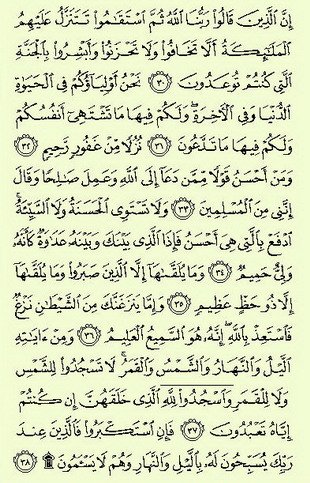 إِنَّ ٱلَّذِينَ قَالُوا۟ رَبُّنَا ٱللَّهُ ثُمَّ ٱسْتَقَـٰمُوا۟ تَتَنَزَّلُ عَلَيْهِمُ
ٱلْمَلَـٰٓئِكَةُ أَلَّا تَخَافُوا۟ وَلَا تَحْزَنُوا۟ وَأَبْشِرُوا۟ بِٱلْجَنَّةِ
ٱلَّتِى كُنتُمْ تُوعَدُونَ ﴿٣٠﴾ نَحْنُ أَوْلِيَآؤُكُمْ فِى ٱلْحَيَوٰةِ
ٱلدُّنْيَا وَفِى ٱلْـَٔاخِرَةِ ۖ وَلَكُمْ فِيهَا مَا تَشْتَهِىٓ أَنفُسُكُمْ
وَلَكُمْ فِيهَا مَا تَدَّعُونَ ﴿٣١﴾ نُزُلًا مِّنْ غَفُورٍ رَّحِيمٍ ﴿٣٢﴾
وَمَنْ أَحْسَنُ قَوْلًا مِّمَّن دَعَآ إِلَى ٱللَّهِ وَعَمِلَ صَـٰلِحًا وَقَالَ
إِنَّنِى مِنَ ٱلْمُسْلِمِينَ ﴿٣٣﴾ وَلَا تَسْتَوِى ٱلْحَسَنَةُ وَلَا ٱلسَّيِّئَةُ ۚ
ٱدْفَعْ بِٱلَّتِى هِىَ أَحْسَنُ فَإِذَا ٱلَّذِى بَيْنَكَ وَبَيْنَهُۥ عَدَٰوَةٌ كَأَنَّهُۥ
وَلِىٌّ حَمِيمٌ ﴿٣٤﴾ وَمَا يُلَقَّىٰهَآ إِلَّا ٱلَّذِينَ صَبَرُوا۟ وَمَا يُلَقَّىٰهَآ
إِلَّا ذُو حَظٍّ عَظِيمٍ ﴿٣٥﴾ وَإِمَّا يَنزَغَنَّكَ مِنَ ٱلشَّيْطَـٰنِ نَزْغٌ
فَٱسْتَعِذْ بِٱللَّهِ ۖ إِنَّهُۥ هُوَ ٱلسَّمِيعُ ٱلْعَلِيمُ ﴿٣٦﴾ وَمِنْ ءَايَـٰتِهِ
ٱلَّيْلُ وَٱلنَّهَارُ وَٱلشَّمْسُ وَٱلْقَمَرُ ۚ لَا تَسْجُدُوا۟ لِلشَّمْسِ
وَلَا لِلْقَمَرِ وَٱسْجُدُوا۟ لِلَّهِ ٱلَّذِى خَلَقَهُنَّ إِن كُنتُمْ
إِيَّاهُ تَعْبُدُونَ ﴿٣٧﴾ فَإِنِ ٱسْتَكْبَرُوا۟ فَٱلَّذِينَ عِندَ
رَبِّكَ يُسَبِّحُونَ لَهُۥ بِٱلَّيْلِ وَٱلنَّهَارِ وَهُمْ لَا يَسْـَٔمُونَ ۩ ﴿٣٨﴾